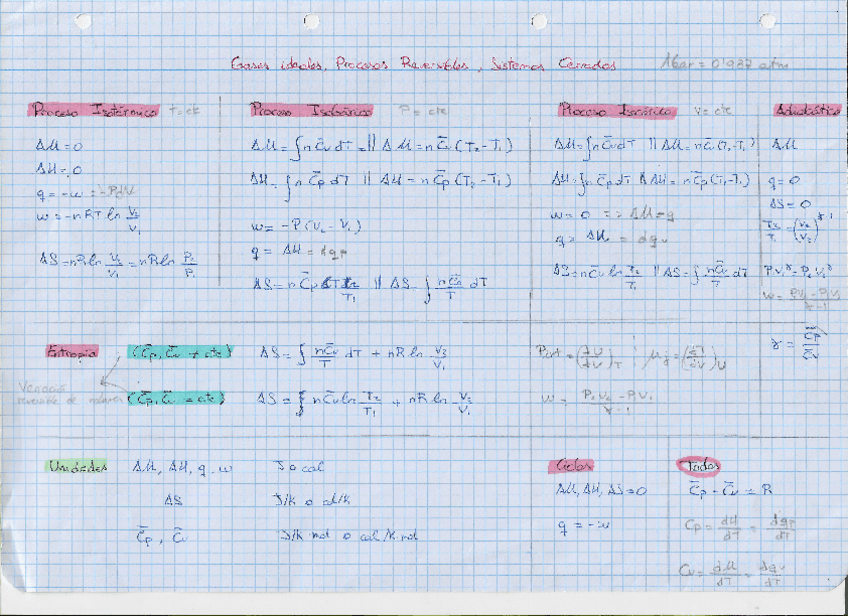 Gases ideales, Procesos Reversibles, Sistemas Cerrados 1 bar = 0'987 atm
Proceso Isotérmico T = cte
ΔU = 0
ΔH = 0
q = -w = -PdV
w = -nRT ln V2/V1
ΔS = nR ln V2/V1 = nR ln P1/P2
Proceso Isobárico P = cte
ΔU = ∫ n C̄v dT = || ΔU = n C̄v (T2 - T1)
ΔH = ∫ n C̄p dT || ΔH = n C̄p (T2 - T1)
w = -P (V2 - V1)
q = ΔH = dqp
ΔS = n C̄p ln T2/T1 || ΔS = ∫ n C̄p/T dT
Proceso Isocórico V = cte
ΔU = ∫ n C̄v dT || ΔU = n C̄v (T2 - T1)
ΔH = ∫ n C̄p dT || ΔH = n C̄p (T2 - T1)
w = 0 => ΔU = q
q = ΔU = dqv
ΔS = n C̄v ln T2/T1 || ΔS = ∫ n C̄v/T dT
Adiabático
ΔU
q = 0
ΔS = 0
T2/T1 = (V1/V2)^γ-1
P1V1^γ = P2V2^γ
w = P2V2 - P1V1/γ-1
γ = C̄p/C̄v
Entropía (C̄p, C̄v ≠ cte) ΔS = ∫ n C̄v/T dT + nR ln V2/V1
(C̄p, C̄v = cte) ΔS = n C̄v ln T2/T1 + nR ln V2/V1
reversible de
Pint = (∂U/∂V)T | μJ = (∂T/∂V)U
w = P2V2 - P1V1/γ-1
Unidades ΔU, ΔH, q, w J o cal
ΔS J/K o cal/K
C̄p, C̄v J/K mol o cal/K mol
Ciclos
ΔU, ΔH, ΔS = 0
q = -w
Todos
C̄p - C̄v = R
Cp = dH/dT = dqp/dT
Cv = dU/dT = dqv/dT